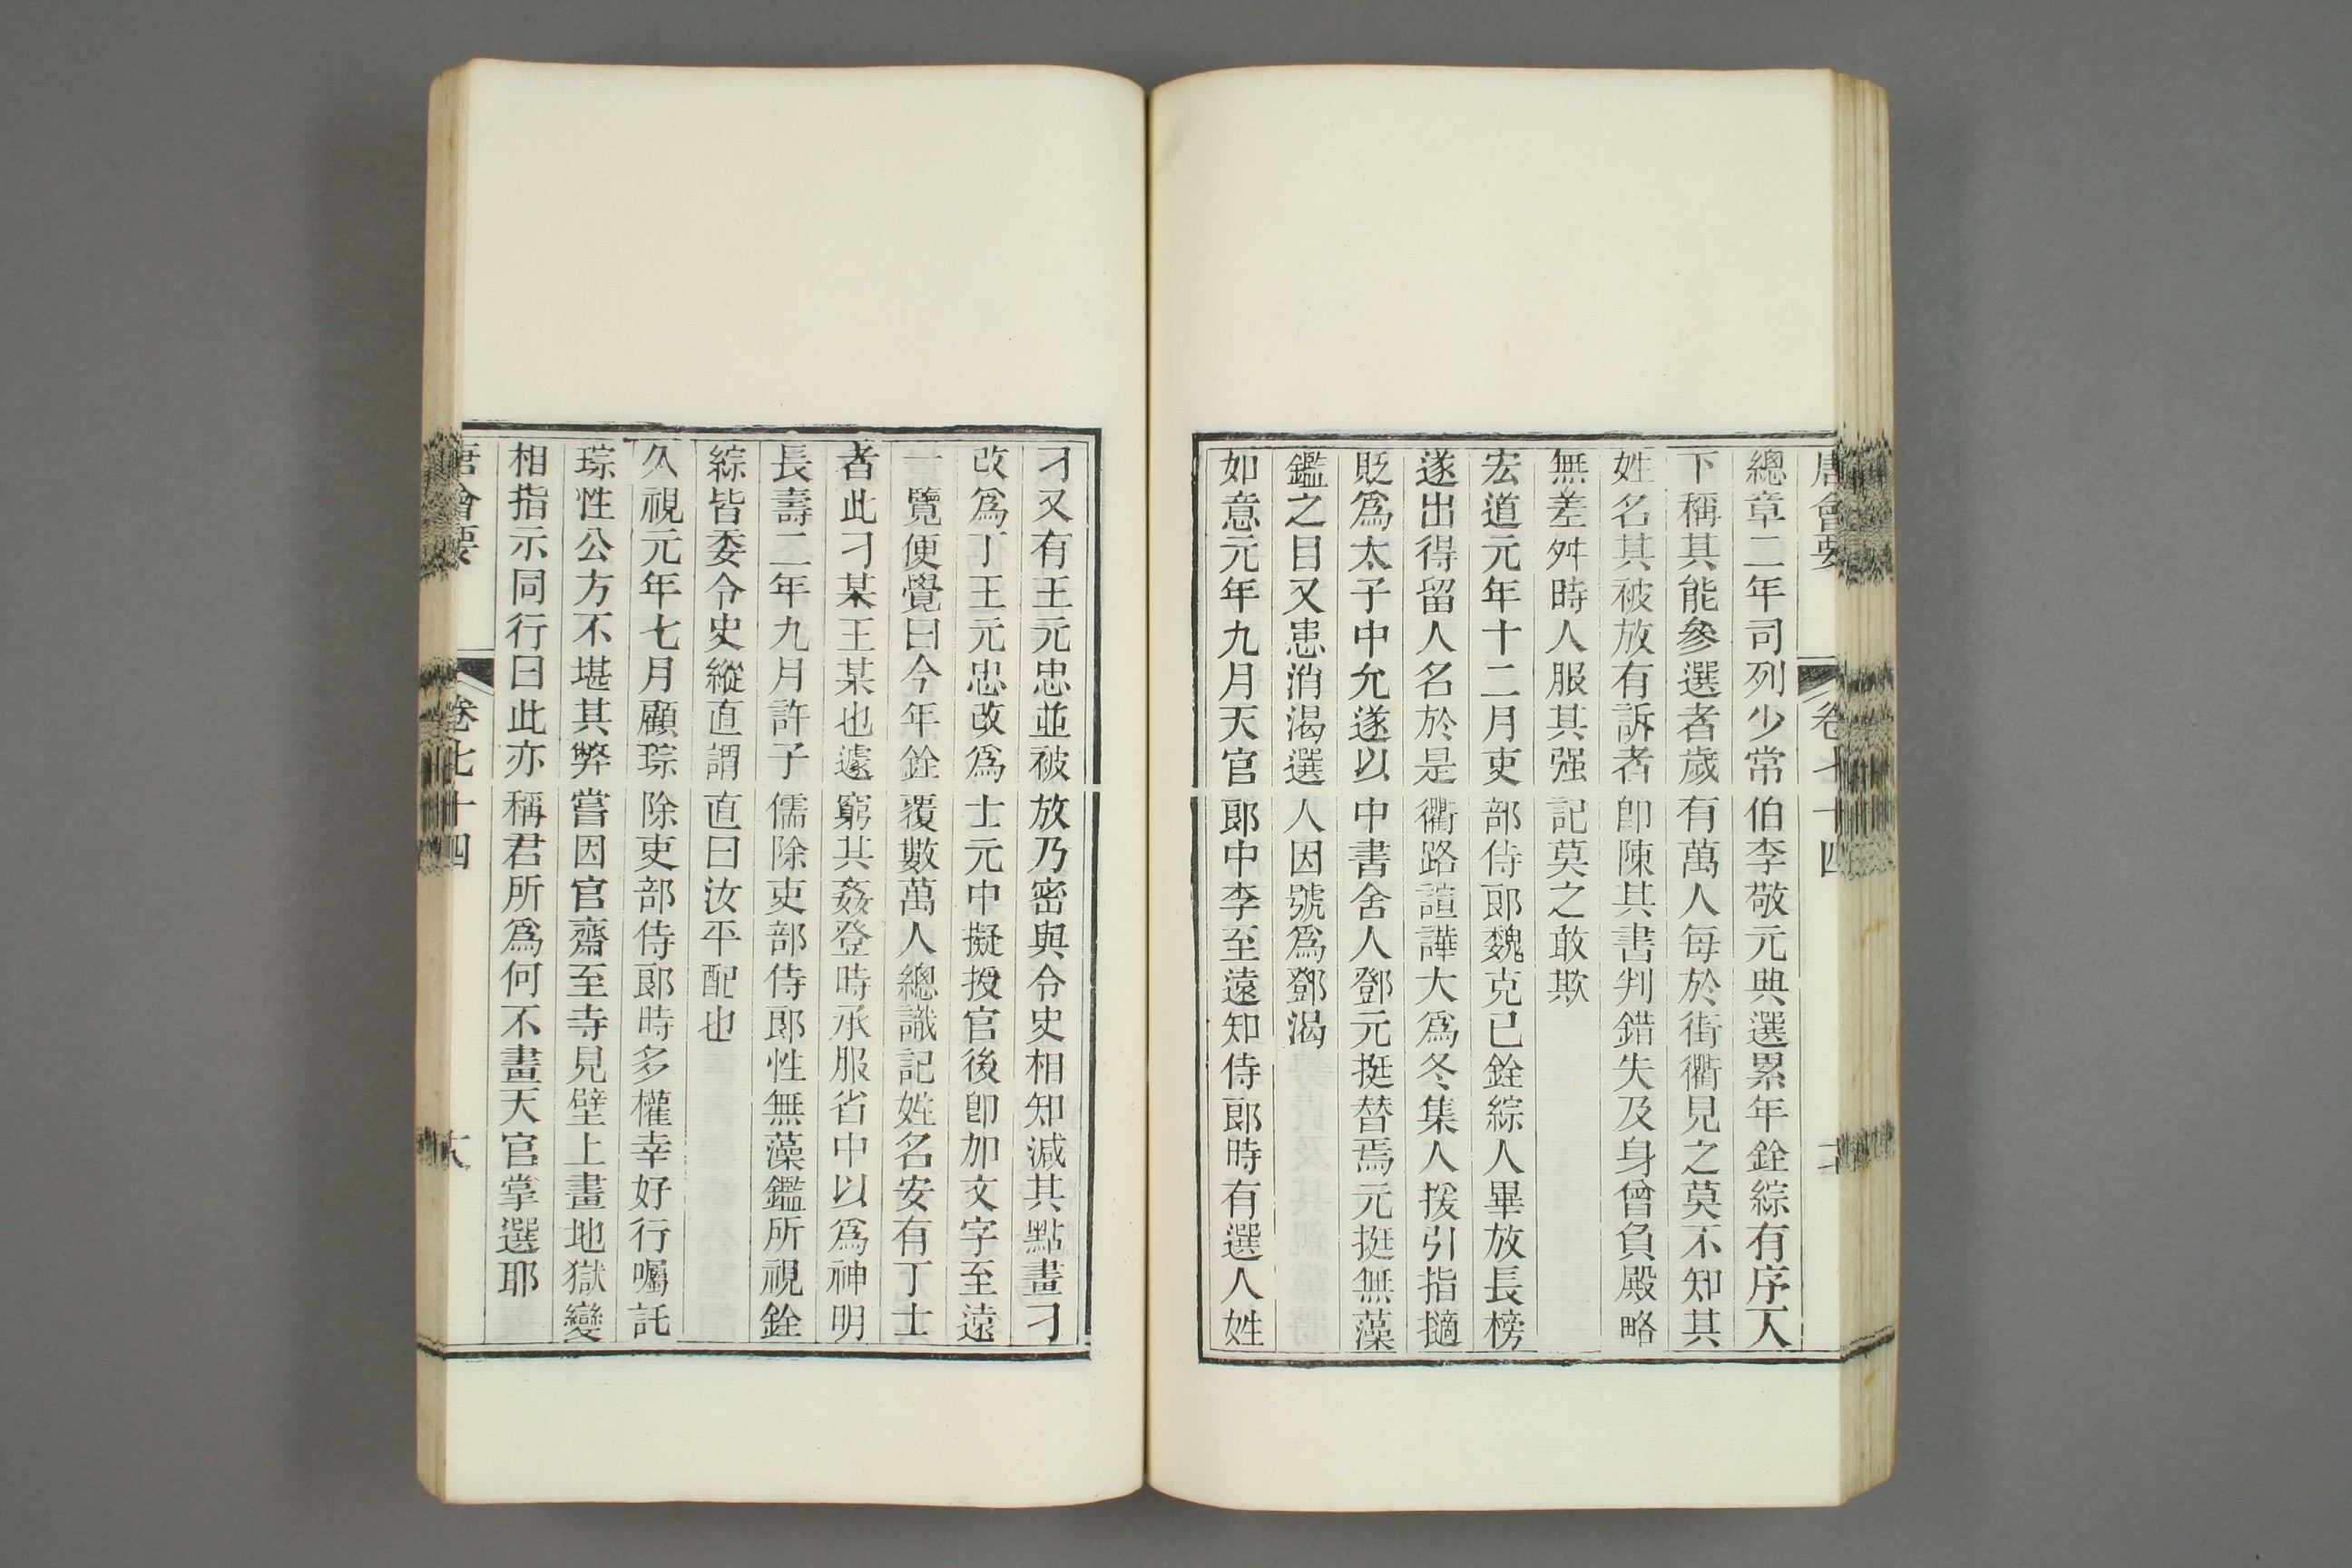 唐會要 卷七十四
總章二年司列少常伯李敬元典選累年銓綜有序天
下稱其能參選者歲有萬人每於街衢見之莫不知其
姓名其被放有訴者卽陳其書判錯失及身曾負殿略
無差舛時人服其强記莫之敢欺
宏道元年十二月吏部侍郎魏克已銓綜人畢放長榜
遂出得留人名於是衢路諠譁大爲冬集人援引指擿
貶爲太子中允遂以中書舍人鄧元挺替焉元挺無藻
鑑之目又患消渴選人因號爲鄧渴
如意元年九月天官郎中李至遠知侍郎時有選人姓
刁又有王元忠並被放乃密與令史相知減其點畫刁
改爲丁王元忠改爲士元中擬授官後卽加文字至遠
一覽便覺曰今年銓覆數萬人總識記姓名安有丁士
者此刁某王某也遽窮其姦登時承服省中以爲神明
長壽二年九月許子儒除吏部侍郎性無藻鑑所視銓
綜皆委令史縱直謂直曰汝平配也
久視元年七月顧琮除吏部侍郎時多權幸好行囑託
琮性公方不堪其弊嘗因官齋至寺見壁上畫地獄變
相指示同行曰此亦稱君所爲何不畫天官掌選耶
唐會要 卷七十四